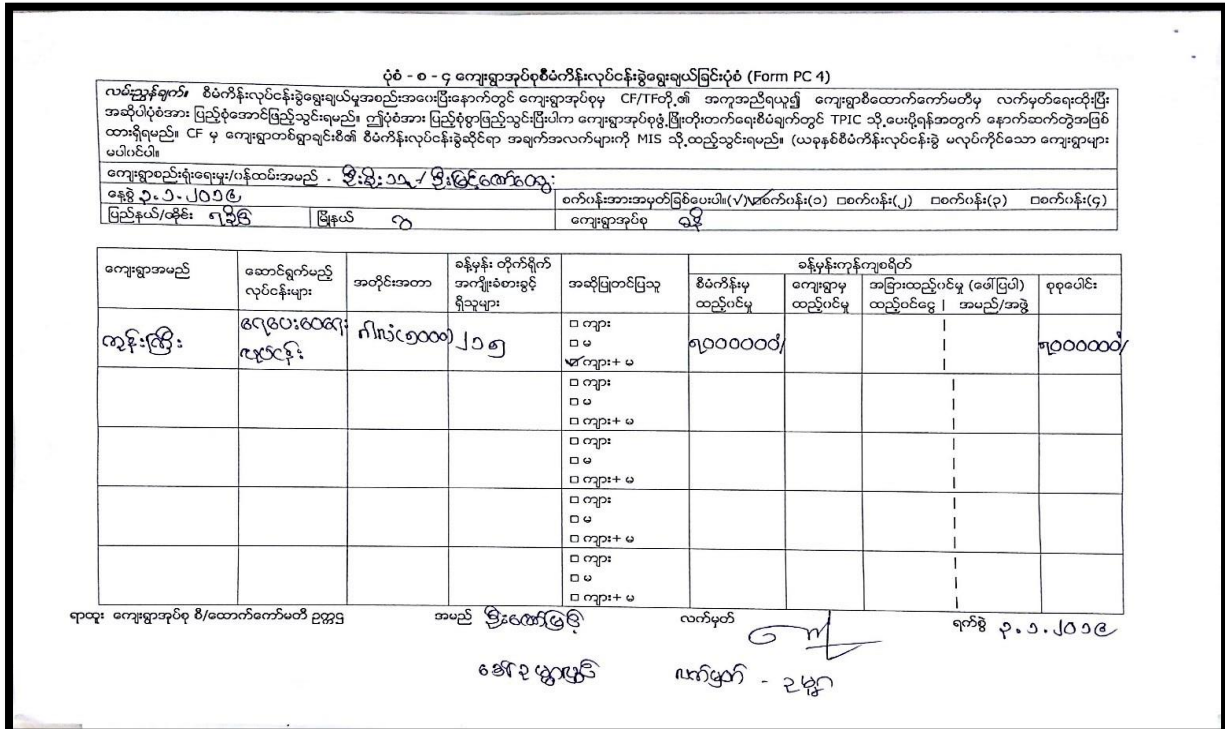 ပုံစံ - စ - ၄ ကျေးရွာအုပ်စုစီမံကိန်းလုပ်ငန်းခွဲရွေးချယ်ခြင်းပုံစံ (Form PC 4)
လမ်းညွှန်ချက်။ စီမံကိန်းလုပ်ငန်းခွဲရွေးချယ်မှုအစည်းအဝေးပြီးနောက်တွင် ကျေးရွာအုပ်စုမှ CF/TFတို့၏ အကူအညီရယူ၍ ကျေးရွာစီထောက်ကော်မတီမှ လက်မှတ်ရေးထိုးပြီး
အဆိုပါပုံစံအား ပြည့်စုံအောင်ဖြည့်သွင်းရမည်။ ဤပုံစံအား ပြည့်စုံစွာဖြည့်သွင်းပြီးပါက ကျေးရွာအုပ်စုဖွံ့ဖြိုးတိုးတက်ရေးစီမံချက်တွင် TPIC သို့ပေးပို့ရန်အတွက် နောက်ဆက်တွဲအဖြစ်
ထားရှိရမည်။ CF မှ ကျေးရွာတစ်ရွာချင်းစီ၏ စီမံကိန်းလုပ်ငန်းခွဲဆိုင်ရာ အချက်အလက်များကို MIS သို့ထည့်သွင်းရမည်။ (ယခုနှစ်စီမံကိန်းလုပ်ငန်းခွဲ မလုပ်ကိုင်သော ကျေးရွာများ
မပါဝင်ပါ။
ကျေးရွာစည်းရုံးရေးမှူး/ဝန်ထမ်းအမည် -
နေ့စွဲ ၃.၁.၂၀၁၉ စက်ဝန်းအားအမှတ်ခြစ်ပေးပါ။(√) ☑စက်ဝန်း(၁) □စက်ဝန်း(၂) □စက်ဝန်း(၃) □စက်ဝန်း(၄)
ပြည်နယ်/တိုင်း ရခိုင် မြို့နယ် ဂွ ကျေးရွာအုပ်စု
ကျေးရွာအမည် ဆောင်ရွက်မည့် လုပ်ငန်းများ အတိုင်းအတာ ခန့်မှန်း တိုက်ရိုက် အကျိုးခံစားခွင့် ရှိသူများ အဆိုပြုတင်ပြသူ ခန့်မှန်းကုန်ကျစရိတ်
စီမံကိန်းမှ ထည့်ဝင်မှု ကျေးရွာမှ ထည့်ဝင်မှု အခြားထည့်ဝင်မှု (ဖေါ်ပြပါ) ထည့်ဝင်ငွေ | အမည်/အဖွဲ့ စုစုပေါင်း
ကုန်းကြီး ရေပေးဝေရေး လုပ်ငန်း ဂါလံ(၅၀၀၀) ၂၁၅ □ ကျား ၇၀၀၀၀၀၀/ ၇၀၀၀၀၀၀/
□ မ
☑ ကျား+ မ
□ ကျား
□ မ
□ ကျား+ မ
□ ကျား
□ မ
□ ကျား+ မ
□ ကျား
□ မ
□ ကျား+ မ
□ ကျား
□ မ
□ ကျား+ မ
ရာထူး ကျေးရွာအုပ်စု စီ/ထောက်ကော်မတီ ဥက္ကဌ အမည် လက်မှတ် ရက်စွဲ ၃.၁.၂၀၁၉
လက်မှတ် -